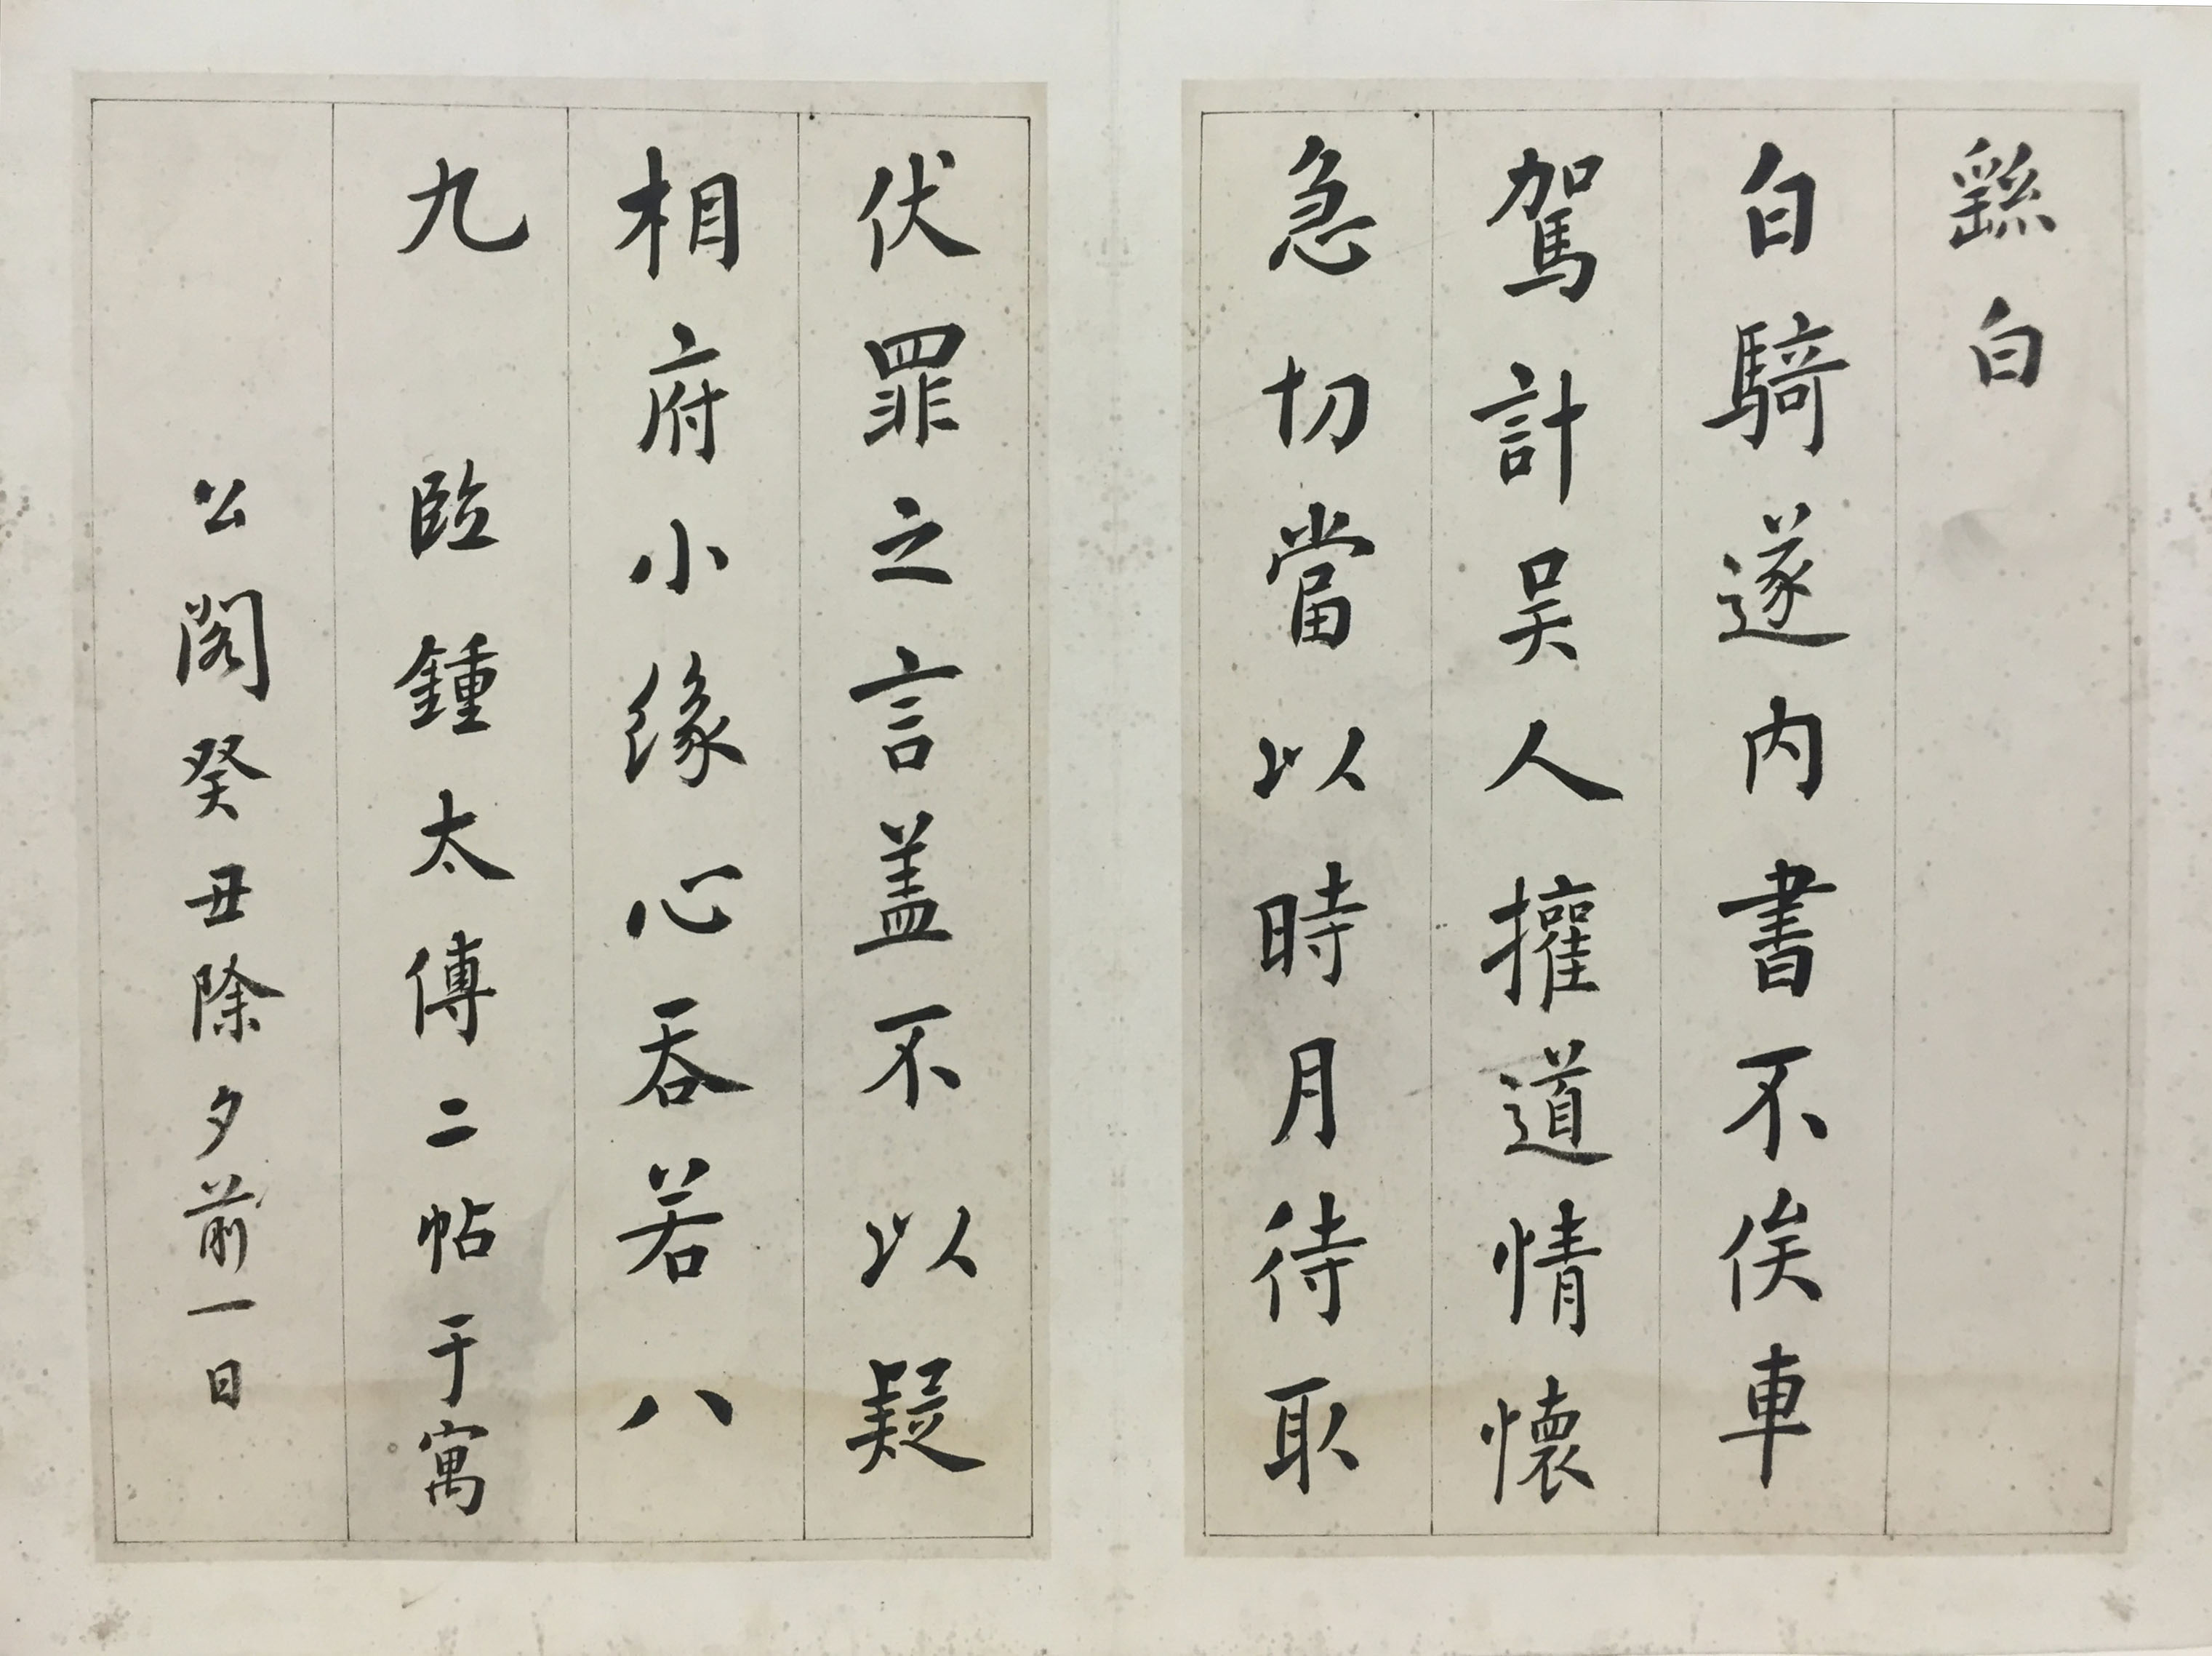 繇白
白騎遂内書不俟車
駕計吴人權道情懷
急切當以時月待取
伏罪之言盖不以疑
相府小緣心吞若八
九 臨鍾太傅二帖于寓
公閣癸丑除夕前一日